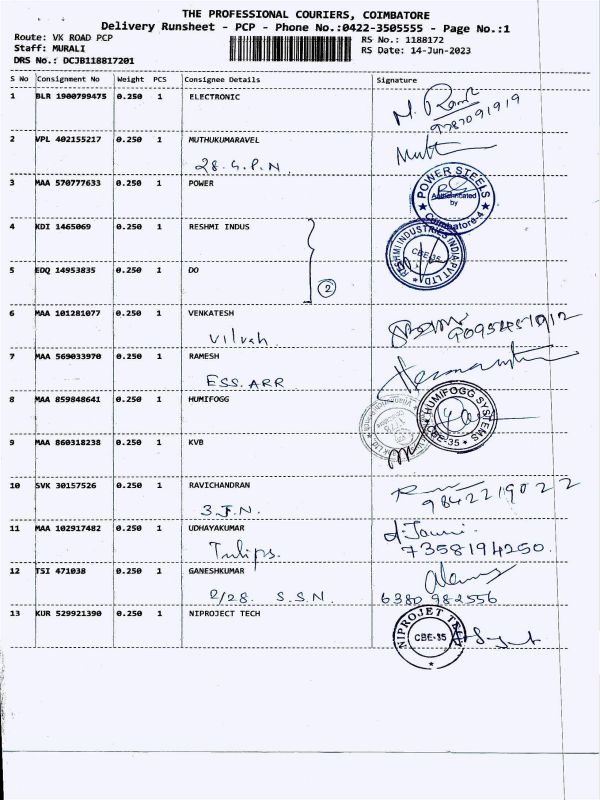 THE PROFESSIONAL COURIERS, COIMBATORE
Delivery Runsheet - PCP - Phone No.:0422-3505555 - Page No.:1
Route: VK ROAD PCP
RS No.: 1188172
Staff: MURALI
RS Date: 14-Jun-2023
DRS No.: DCJB118817201
S No Consignment No Weight PCS Consignee Details Signature
1 BLR 1900799475 0.250 1 ELECTRONIC
9787091919
2 VPL 402155217 0.250 1 MUTHUKUMARAVEL
28. G.P.N.
3 MAA 570777633 0.250 1 POWER
POWER STEELS
Authenticated
by
Coimbatore 4
4 KDI 1465069 0.250 1 RESHMI INDUS
RESHMI INDUSTRIES INDIA PVT LTD
CBE-35
5 EDQ 14953835 0.250 1 DO
2
6 MAA 101281077 0.250 1 VENKATESH
Vilvah
7 MAA 569033970 0.250 1 RAMESH
ESS. ARR
8 MAA 859848641 0.250 1 HUMIFOGG
HUMIFOGG SYSTEMS
CBE-35
9 MAA 860318238 0.250 1 KVB
10 SVK 30157526 0.250 1 RAVICHANDRAN
9842219022
3.J.N.
11 MAA 102917482 0.250 1 UDHAYAKUMAR
Tulips.
7358194250.
12 TSI 471038 0.250 1 GANESHKUMAR
2/28. S.S.N.
6380 982556
13 KUR 529921390 0.250 1 NIPROJECT TECH
NIPROJET TECH
CBE-35